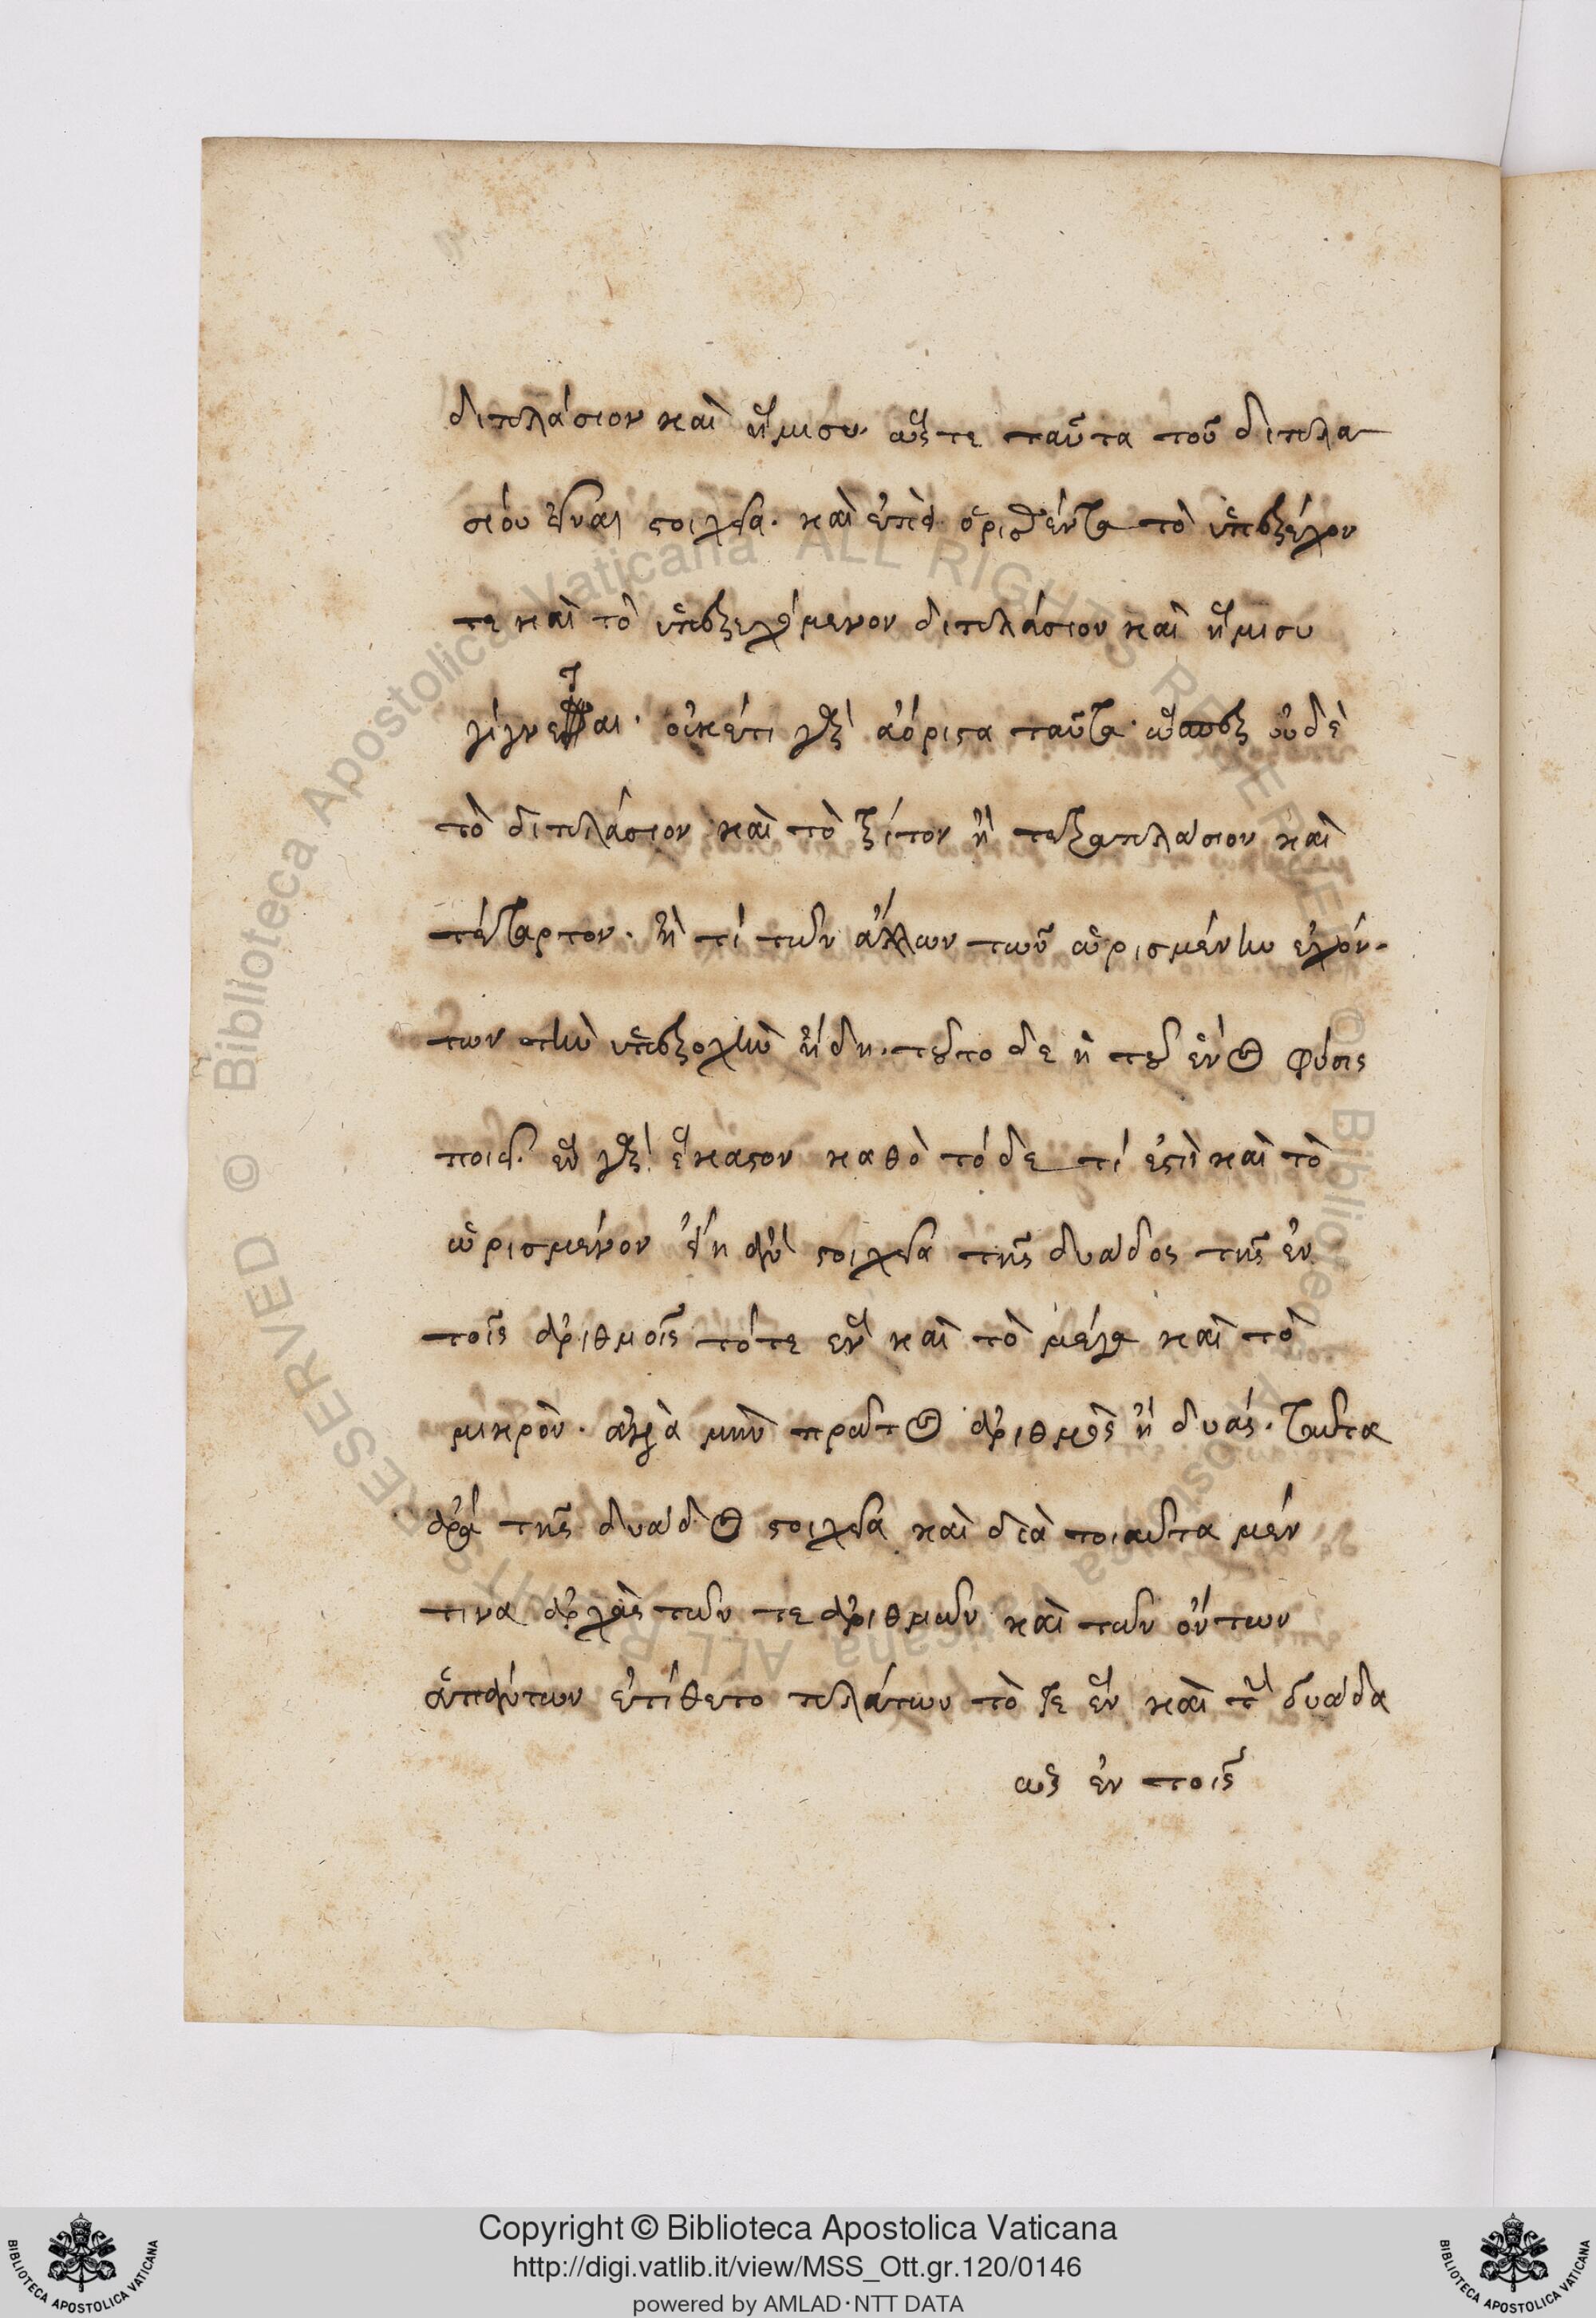 διπλάσιον καὶ ἥμισυ. ὥς τε ταῦτα τοῦ διπλα
σίου εἶναι στοιχεῖα. καὶ ἐπεὶ ὁρισθέντα τὸ ὑπερέχον
τε καὶ τὸ ὑπερεχόμενον διπλάσιον καὶ ἥμισυ
γίγνεται. οὐκέτι γὰρ ἀόριστα ταῦτα. ὥσπερ οὐδὲ
τὸ διπλάσιον καὶ τὸ τρίτον ἢ τετραπλάσιον καὶ
τέταρτον. ἢ τί τῶν ἄλλων τῶν ὡρισμένην ἐχόν-
των τὴν ὑπεροχὴν ἤδη. τοῦτο δε ἡ τοῦ ἑνὸς φύσις
ποιεῖ. ἓν γὰρ ἕκαστον καθὸ τόδε τί ἐστὶ καὶ τὸ
ὡρισμένον εἴη ἂν στοιχεῖα τῆς δυάδος τῆς ἐν
τοῖς ἀριθμοῖς τό τε ἓν καὶ τὸ μέγα καὶ τὸ
μικρὸν. ἀλλὰ μὴν πρῶτος ἀριθμὸς ἡ δυάς. ταῦτα
ἄρα τῆς δυάδος στοιχεῖα καὶ διὰ τοιαῦτα μέν
τινα ἀρχὰς τῶν τε ἀριθμῶν καὶ τῶν ὄντων
ἁπάντων ἐτίθετο πλάτων τό τε ἓν καὶ τὴν δυάδα
ὡς ἐν τοῖς
Copyright © Biblioteca Apostolica Vaticana
http://digi.vatlib.it/view/MSS_Ott.gr.120/0146
powered by AMLAD·NTT DATA
BIBLIOTECA APOSTOLICA VATICANA
BIBLIOTECA APOSTOLICA VATICANA
© Biblioteca Apostolica Vaticana ALL RIGHTS RESERVED
© Biblioteca Apostolica Vaticana ALL RIGHTS RESERVED